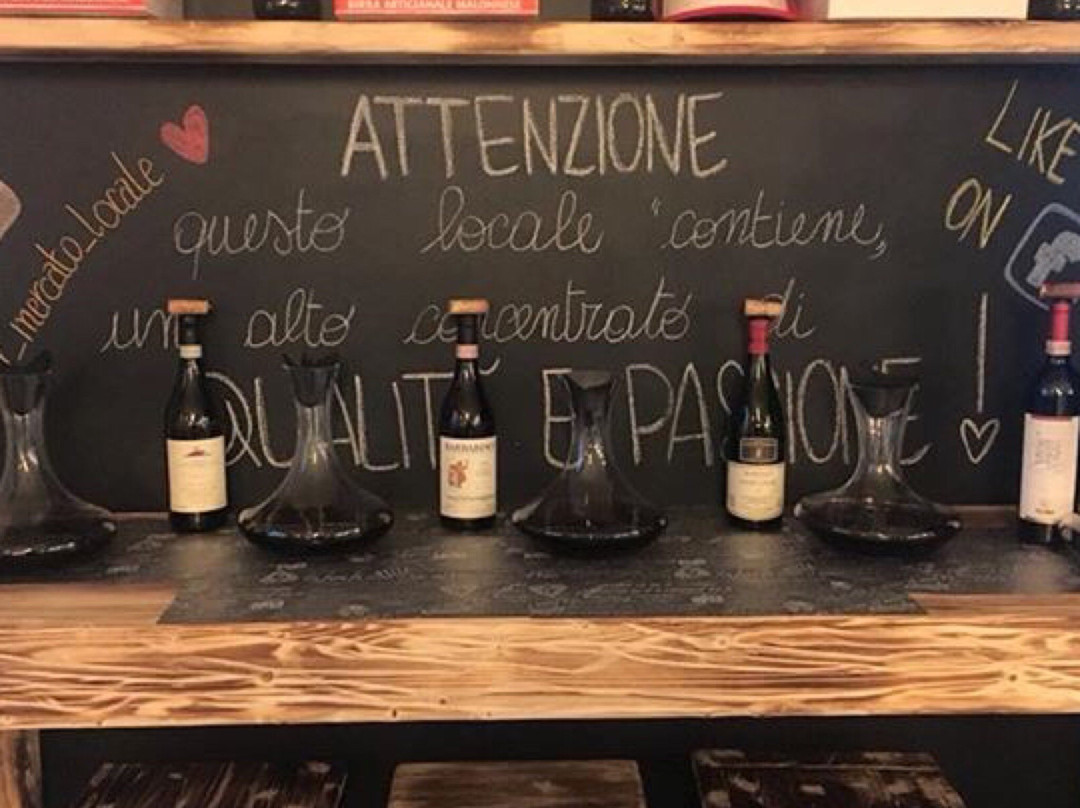 BIRRA ARTIGIANALE MALONNESE
ATTENZIONE
questo locale "contiene,
un alto concentrato di
QUALITÀ E PASSIONE
_mercato_Locale
LIKE
ON
BARBARESCO